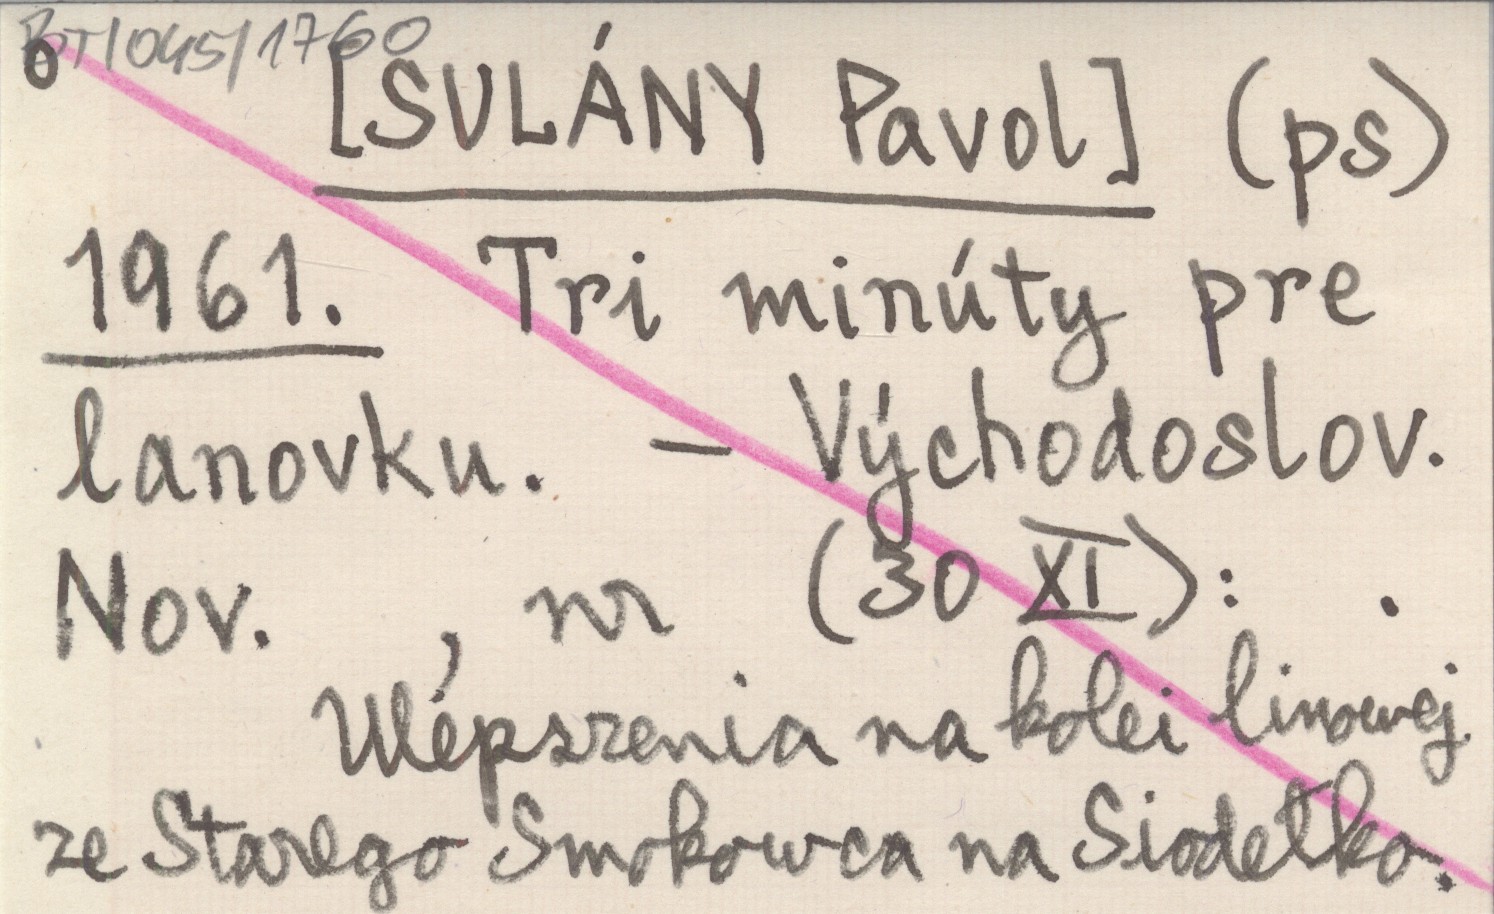 BT/045/1760
[SULÁNY Pavol] (ps)
1961. Tri minúty pre
lanovku. – Východoslov.
Nov. , nr (30 XI): .
Ulepszenia na kolei linowej
ze Starego Smokowca na Siodełko.